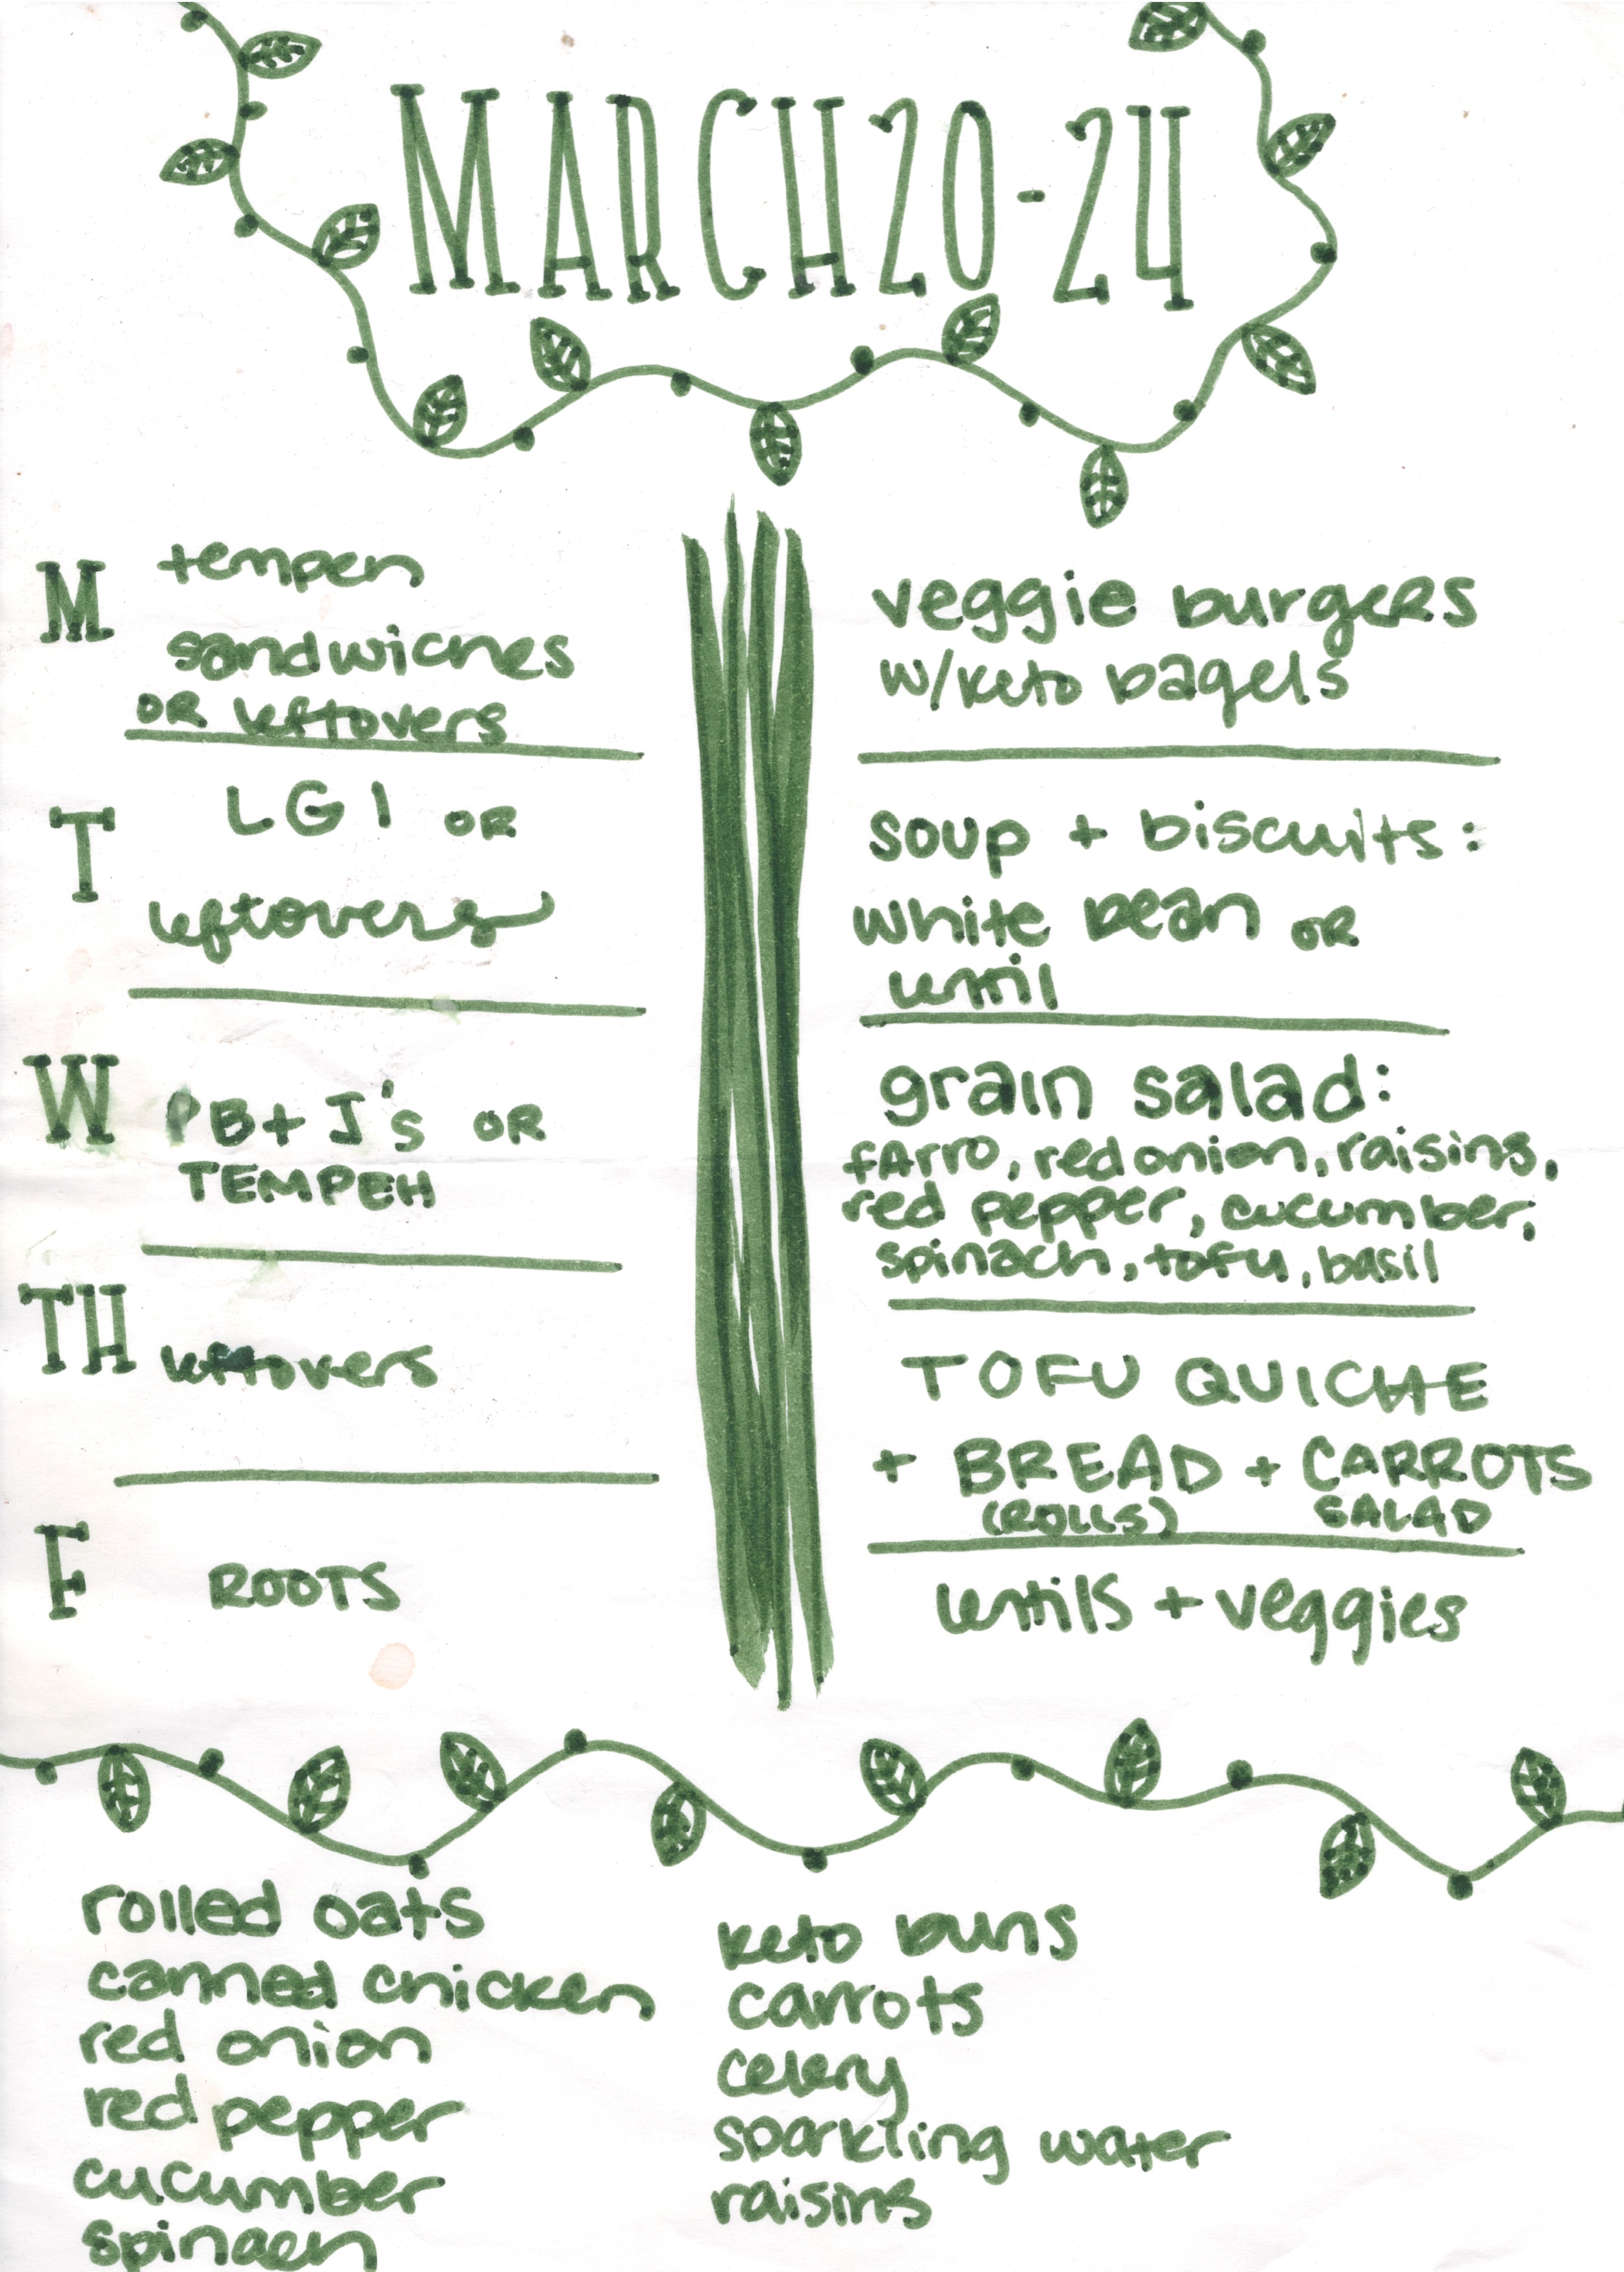 MARCH 20-24
M
tempeh
sandwiches
OR leftovers
veggie burgers
w/keto bagels
T
LG1 OR
leftovers
soup + biscuits:
white bean OR
lentil
W
PB+J's OR
TEMPEH
grain salad:
farro, red onion, raisins,
red pepper, cucumber,
spinach, tofu, basil
TH
leftovers
TOFU QUICHE
+ BREAD + CARROTS
(ROLLS) SALAD
F
ROOTS
lentils + veggies
rolled oats
canned chicken
red onion
red pepper
cucumber
spinach
keto buns
carrots
celery
sparkling water
raisins